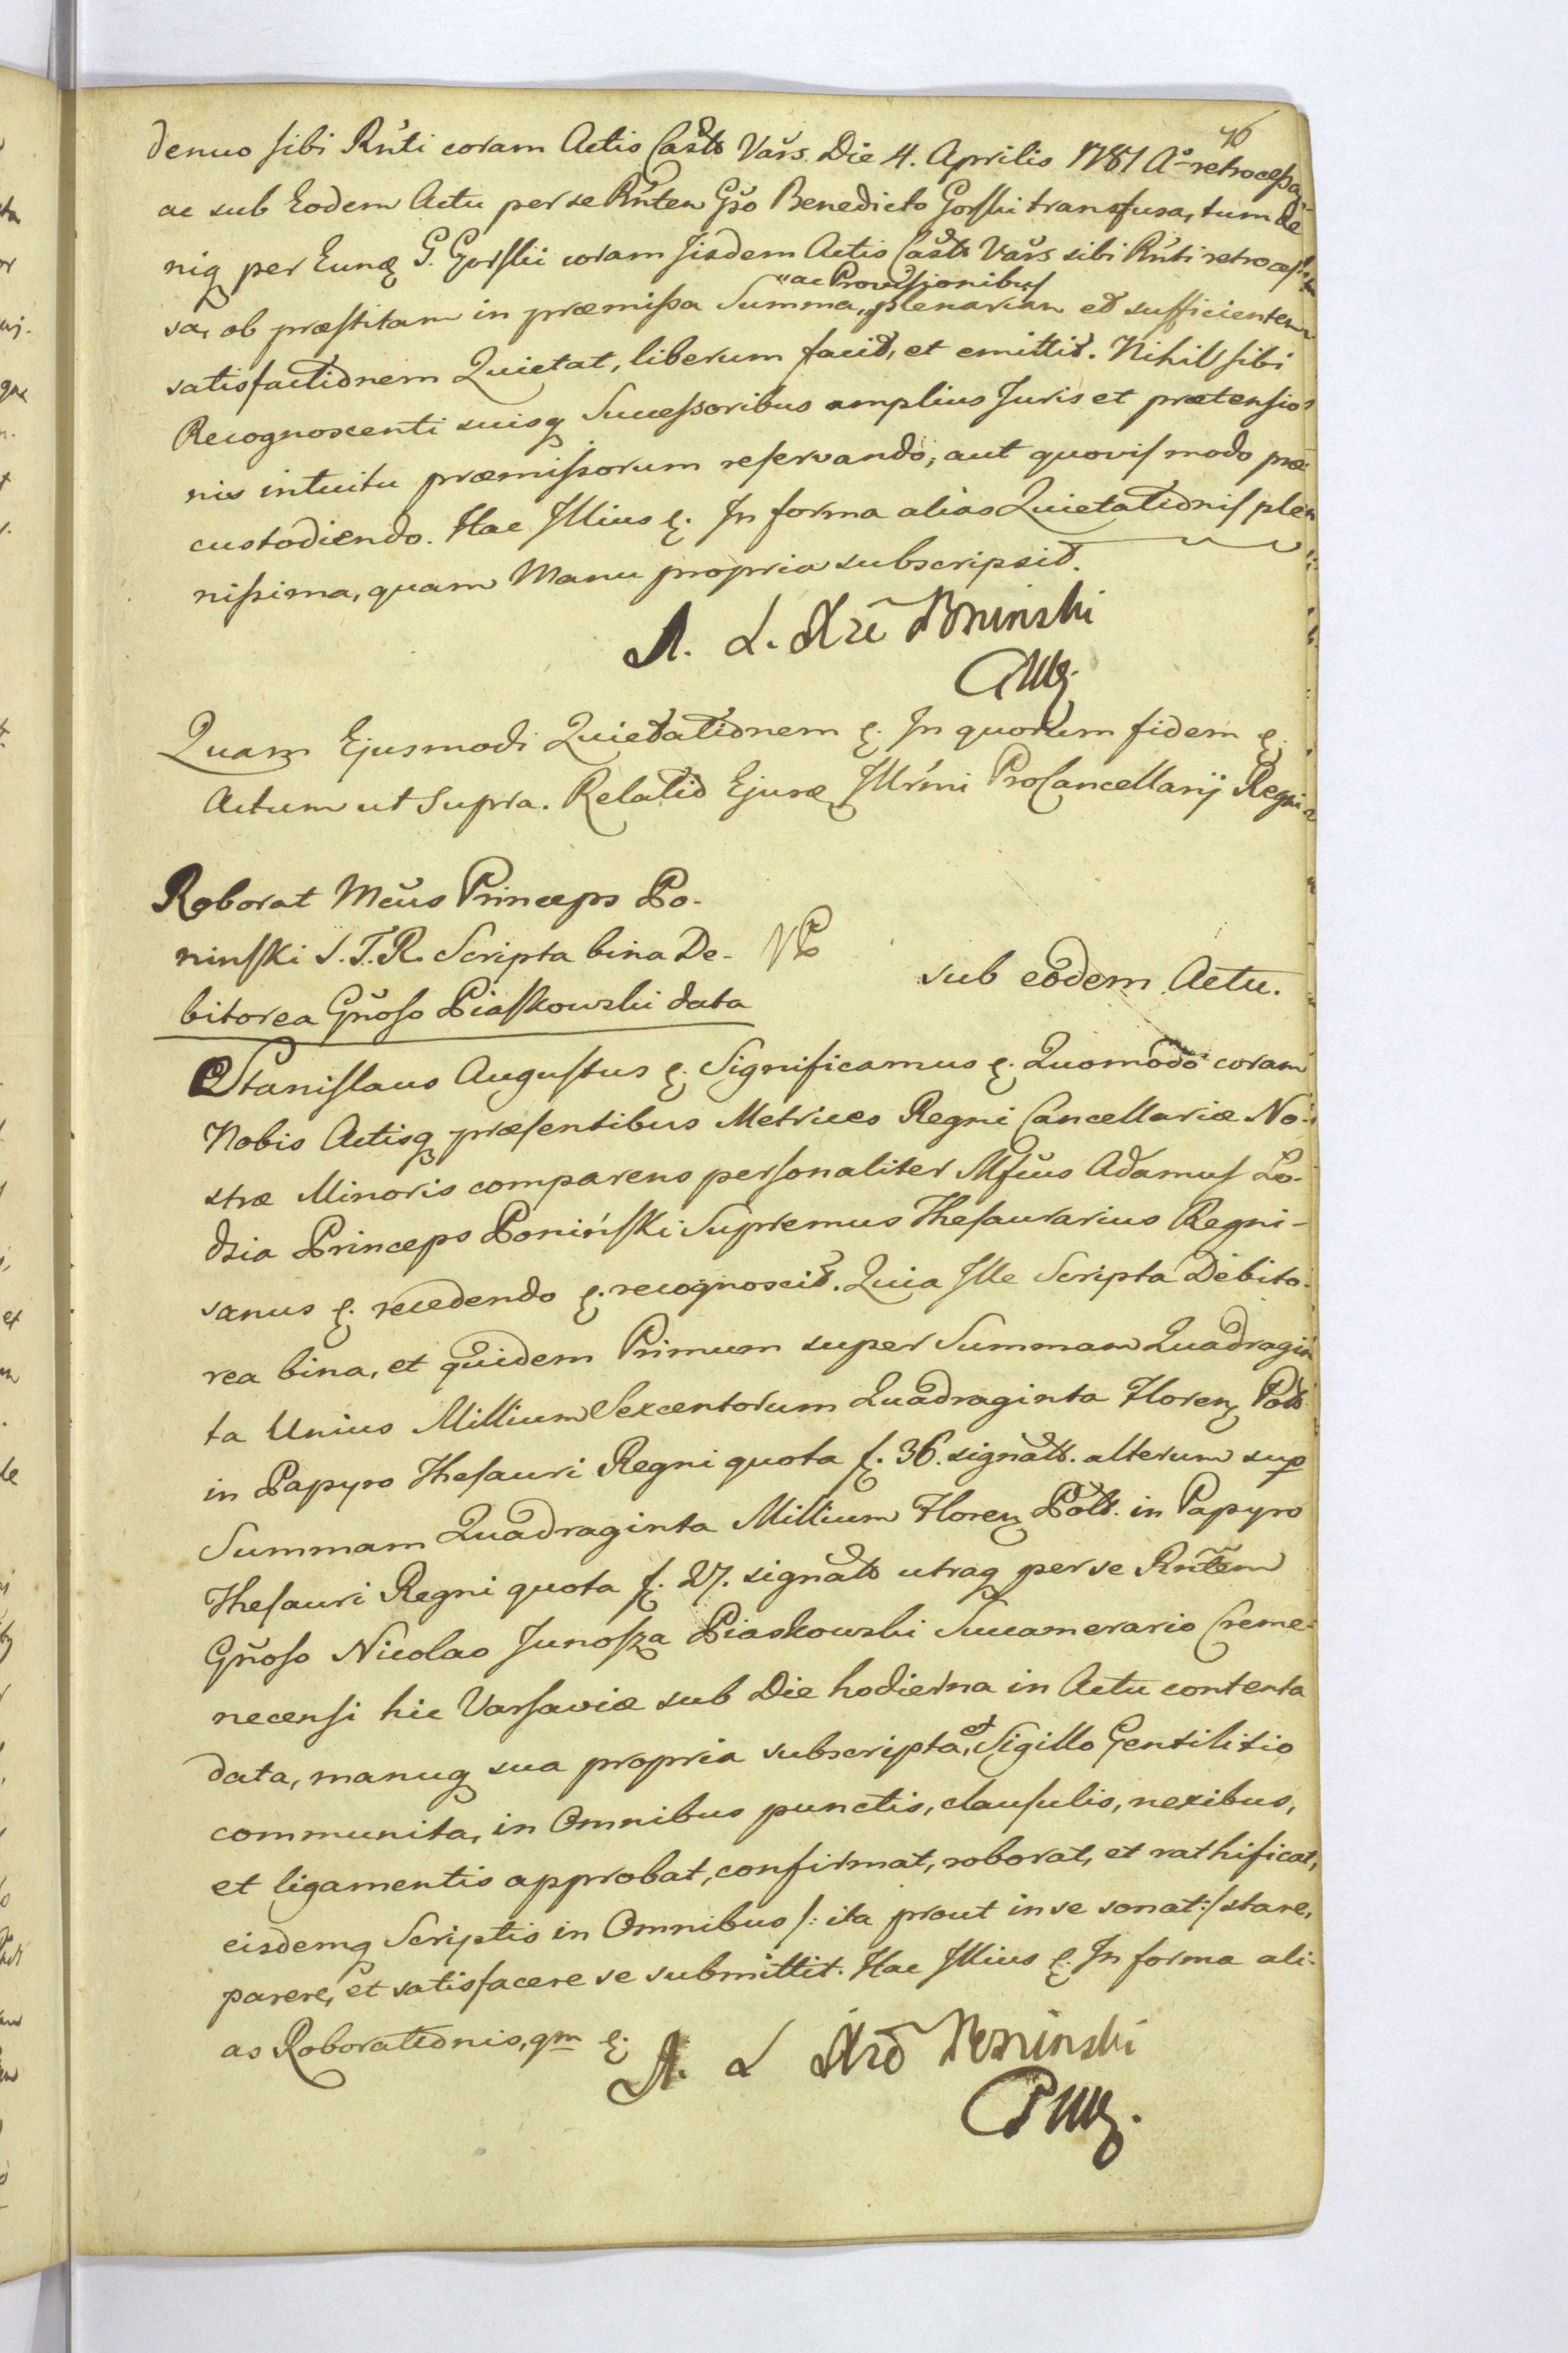 46
denuo sibi Rnti coram Actis Castr Vars. Die 4. Aprilis 1781 Ao retrocessa,
ac sub Eodem Actu per se Rnten Gso Benedicto Gorski transfusa, tum de
niq per Eundę G. Gorskii coram Jisdem Actis Castr Vars sibi Rnti retroces
"ac Provisionibus
sa, ob præstitam in præmissa Summa, plenariam et sufficientem
satisfactionem Quietat, liberum facit, et emittit. Nihil sibi
Recognoscenti suisq Successoribus amplius Juris et prætensio
nis intuitu præmissorum reservando, aut quovis modo præ
custodiendo. Hac Illius ę. In forma alias Quietationis ple
nissima, quam Manu propria subscripsit.
A. Ł. Xże Poninski
mp.
Quam Ejusmodi Quietationem ę. In quorum fidem ę.
Actum ut Supra. Relatio Ejusdę Illrmi ProCancellarij Regni
Roborat Mcus Princeps Po-
ninski S.T.R. Scripta bina De-
bitorea Gnoso Piaskowski data
sub eodem Actu.
Stanislaus Augustus ę. Significamus ę. Quomodo coram
Nobis Actisq præsentibus Metrices Regni Cancellariæ No-
stræ Minoris comparens personaliter Mfcus Adamus Ło-
dzia Princeps Poniński Supremus Thesaurarius Regni-
sanus ę. recedendo ę. recognoscit. Quia Ille Scripta Debito-
rea bina, et quidem Primum super Summam Quadragin
ta Unius Millium Sexcentorum Quadraginta Floren. Pols
in Papyro Thesauri Regni quota f. 36. signats. alterum sup
Summam Quadraginta Millium Floren. Pols. in Papyro
Thesauri Regni quota f. 27. signats utraq per se Rntem
Gnoso Nicolao Junosza Piaskowski Succamerario Creme-
necensi hic Varsaviæ sub Die hodierna in Actu contenta
data, manuq sua propria subscripta, et Sigillo Gentilitio
communita, in Omnibus punctis, clausulis, nexibus,
et ligamentis approbat, confirmat, roborat, et rathificat,
eisdemq Scriptis in Omnibus /: ita prout in se sonat :/ stare,
parere, et satisfacere se submittit. Hac Illius ę. In forma ali-
as Roborationis, qm ę.
A. Ł Xże Poninski
mp.